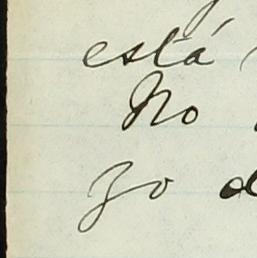 está
No
zo d